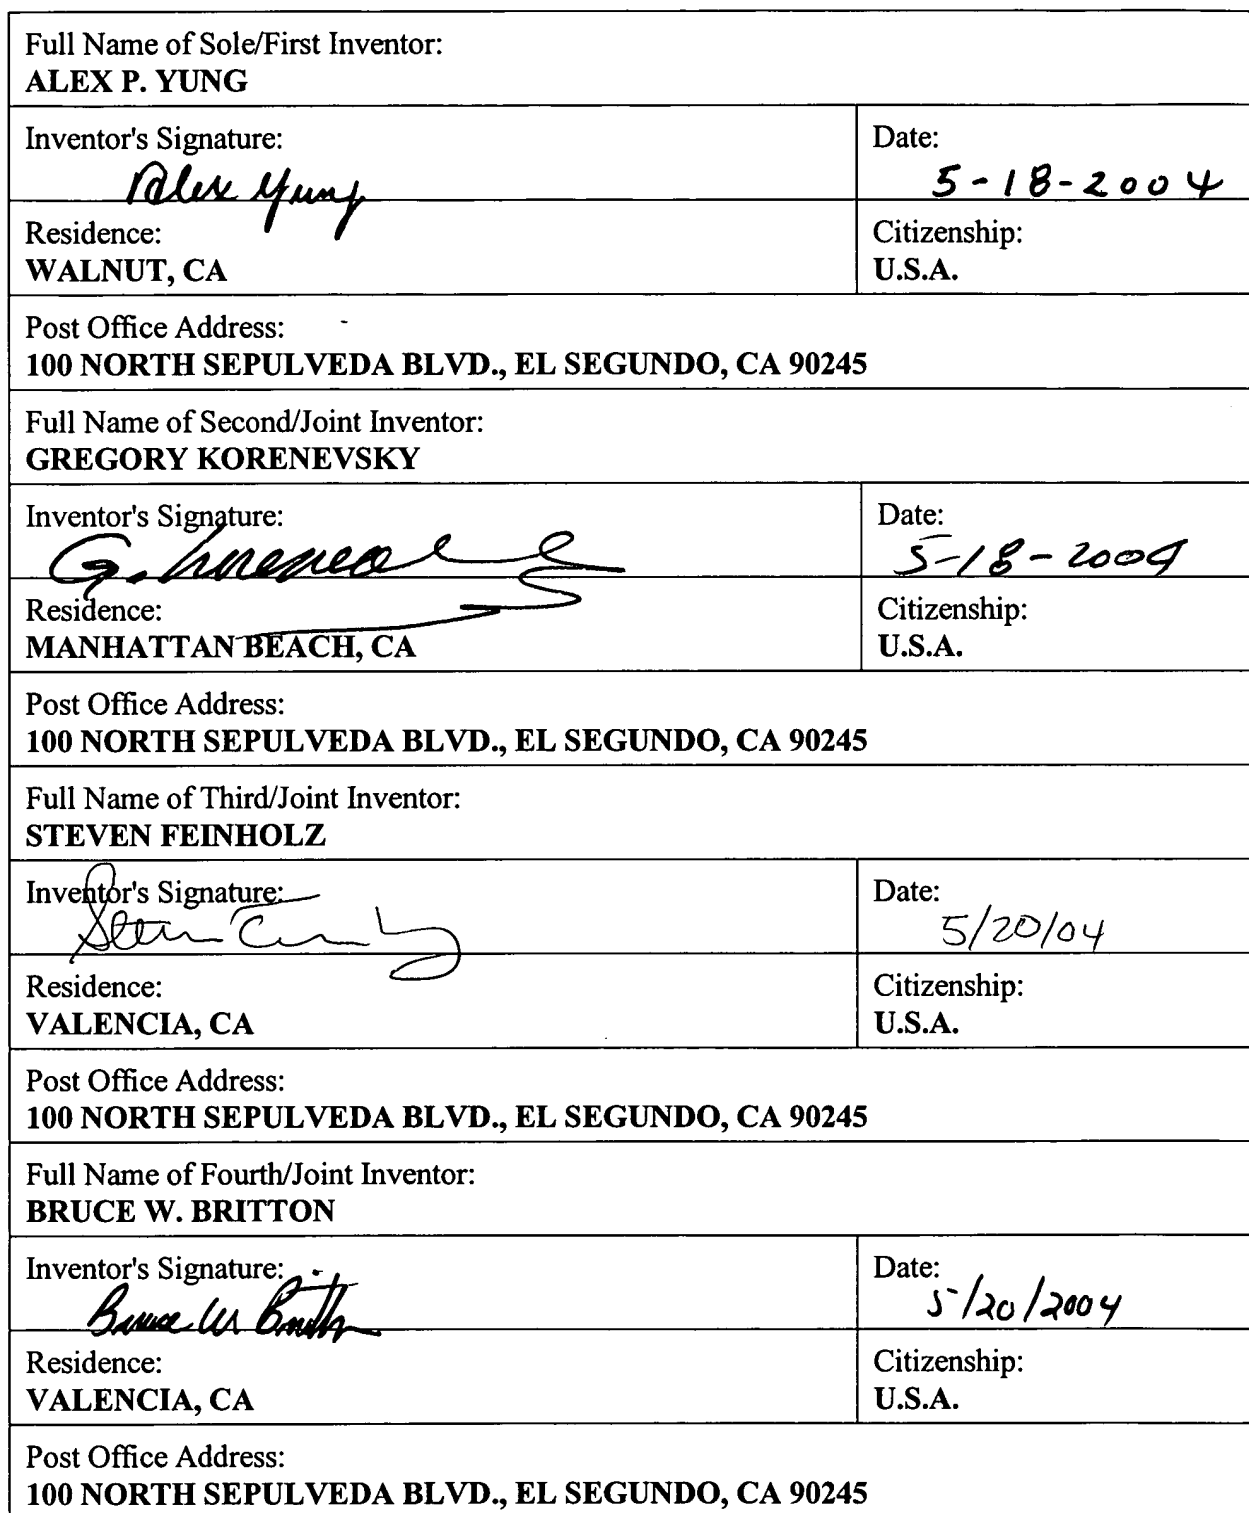 Full Name of Sole/First Inventor:
ALEX P. YUNG
Inventor's Signature:
Alex Yung
Date:
5-18-2004
Residence:
WALNUT, CA
Citizenship:
U.S.A.
Post Office Address:
100 NORTH SEPULVEDA BLVD., EL SEGUNDO, CA 90245
Full Name of Second/Joint Inventor:
GREGORY KORENEVSKY
Inventor's Signature:
G.
Date:
5-18-2004
Residence:
MANHATTAN BEACH, CA
Citizenship:
U.S.A.
Post Office Address:
100 NORTH SEPULVEDA BLVD., EL SEGUNDO, CA 90245
Full Name of Third/Joint Inventor:
STEVEN FEINHOLZ
Inventor's Signature:
Date:
5/20/04
Residence:
VALENCIA, CA
Citizenship:
U.S.A.
Post Office Address:
100 NORTH SEPULVEDA BLVD., EL SEGUNDO, CA 90245
Full Name of Fourth/Joint Inventor:
BRUCE W. BRITTON
Inventor's Signature:
Bruce W Britton
Date:
5/20/2004
Residence:
VALENCIA, CA
Citizenship:
U.S.A.
Post Office Address:
100 NORTH SEPULVEDA BLVD., EL SEGUNDO, CA 90245